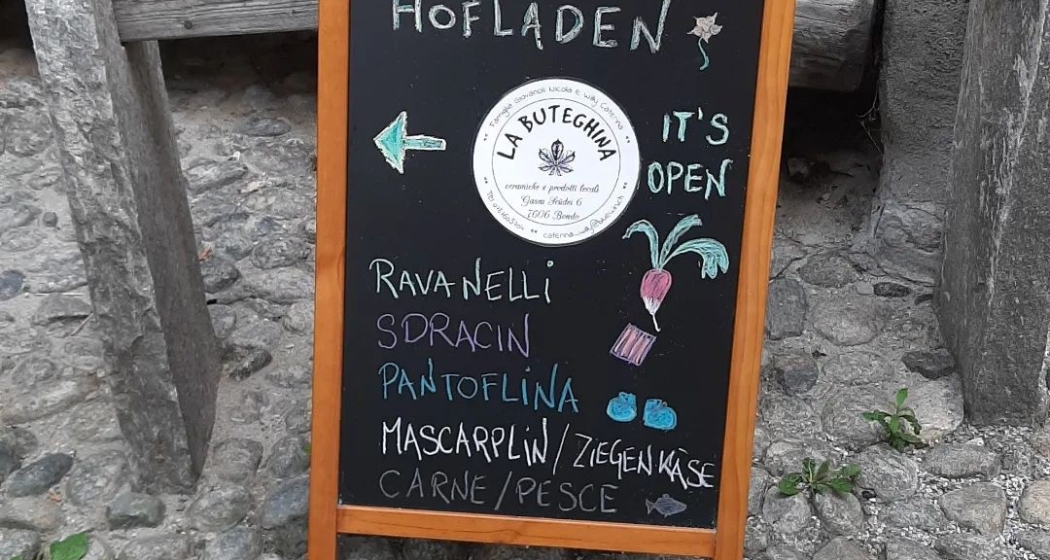 HOFLADEN
Famiglia Giovanoli Nicola e Willy Caterina
LA BUTEGHINA
IT'S
OPEN
ceramiche e prodotti locali
7606 Bondo
RAVANELLI
SDRACIN
PANTOFLINA
MASCARPLIN/ZIEGENKÄSE
CARNE/PESCE